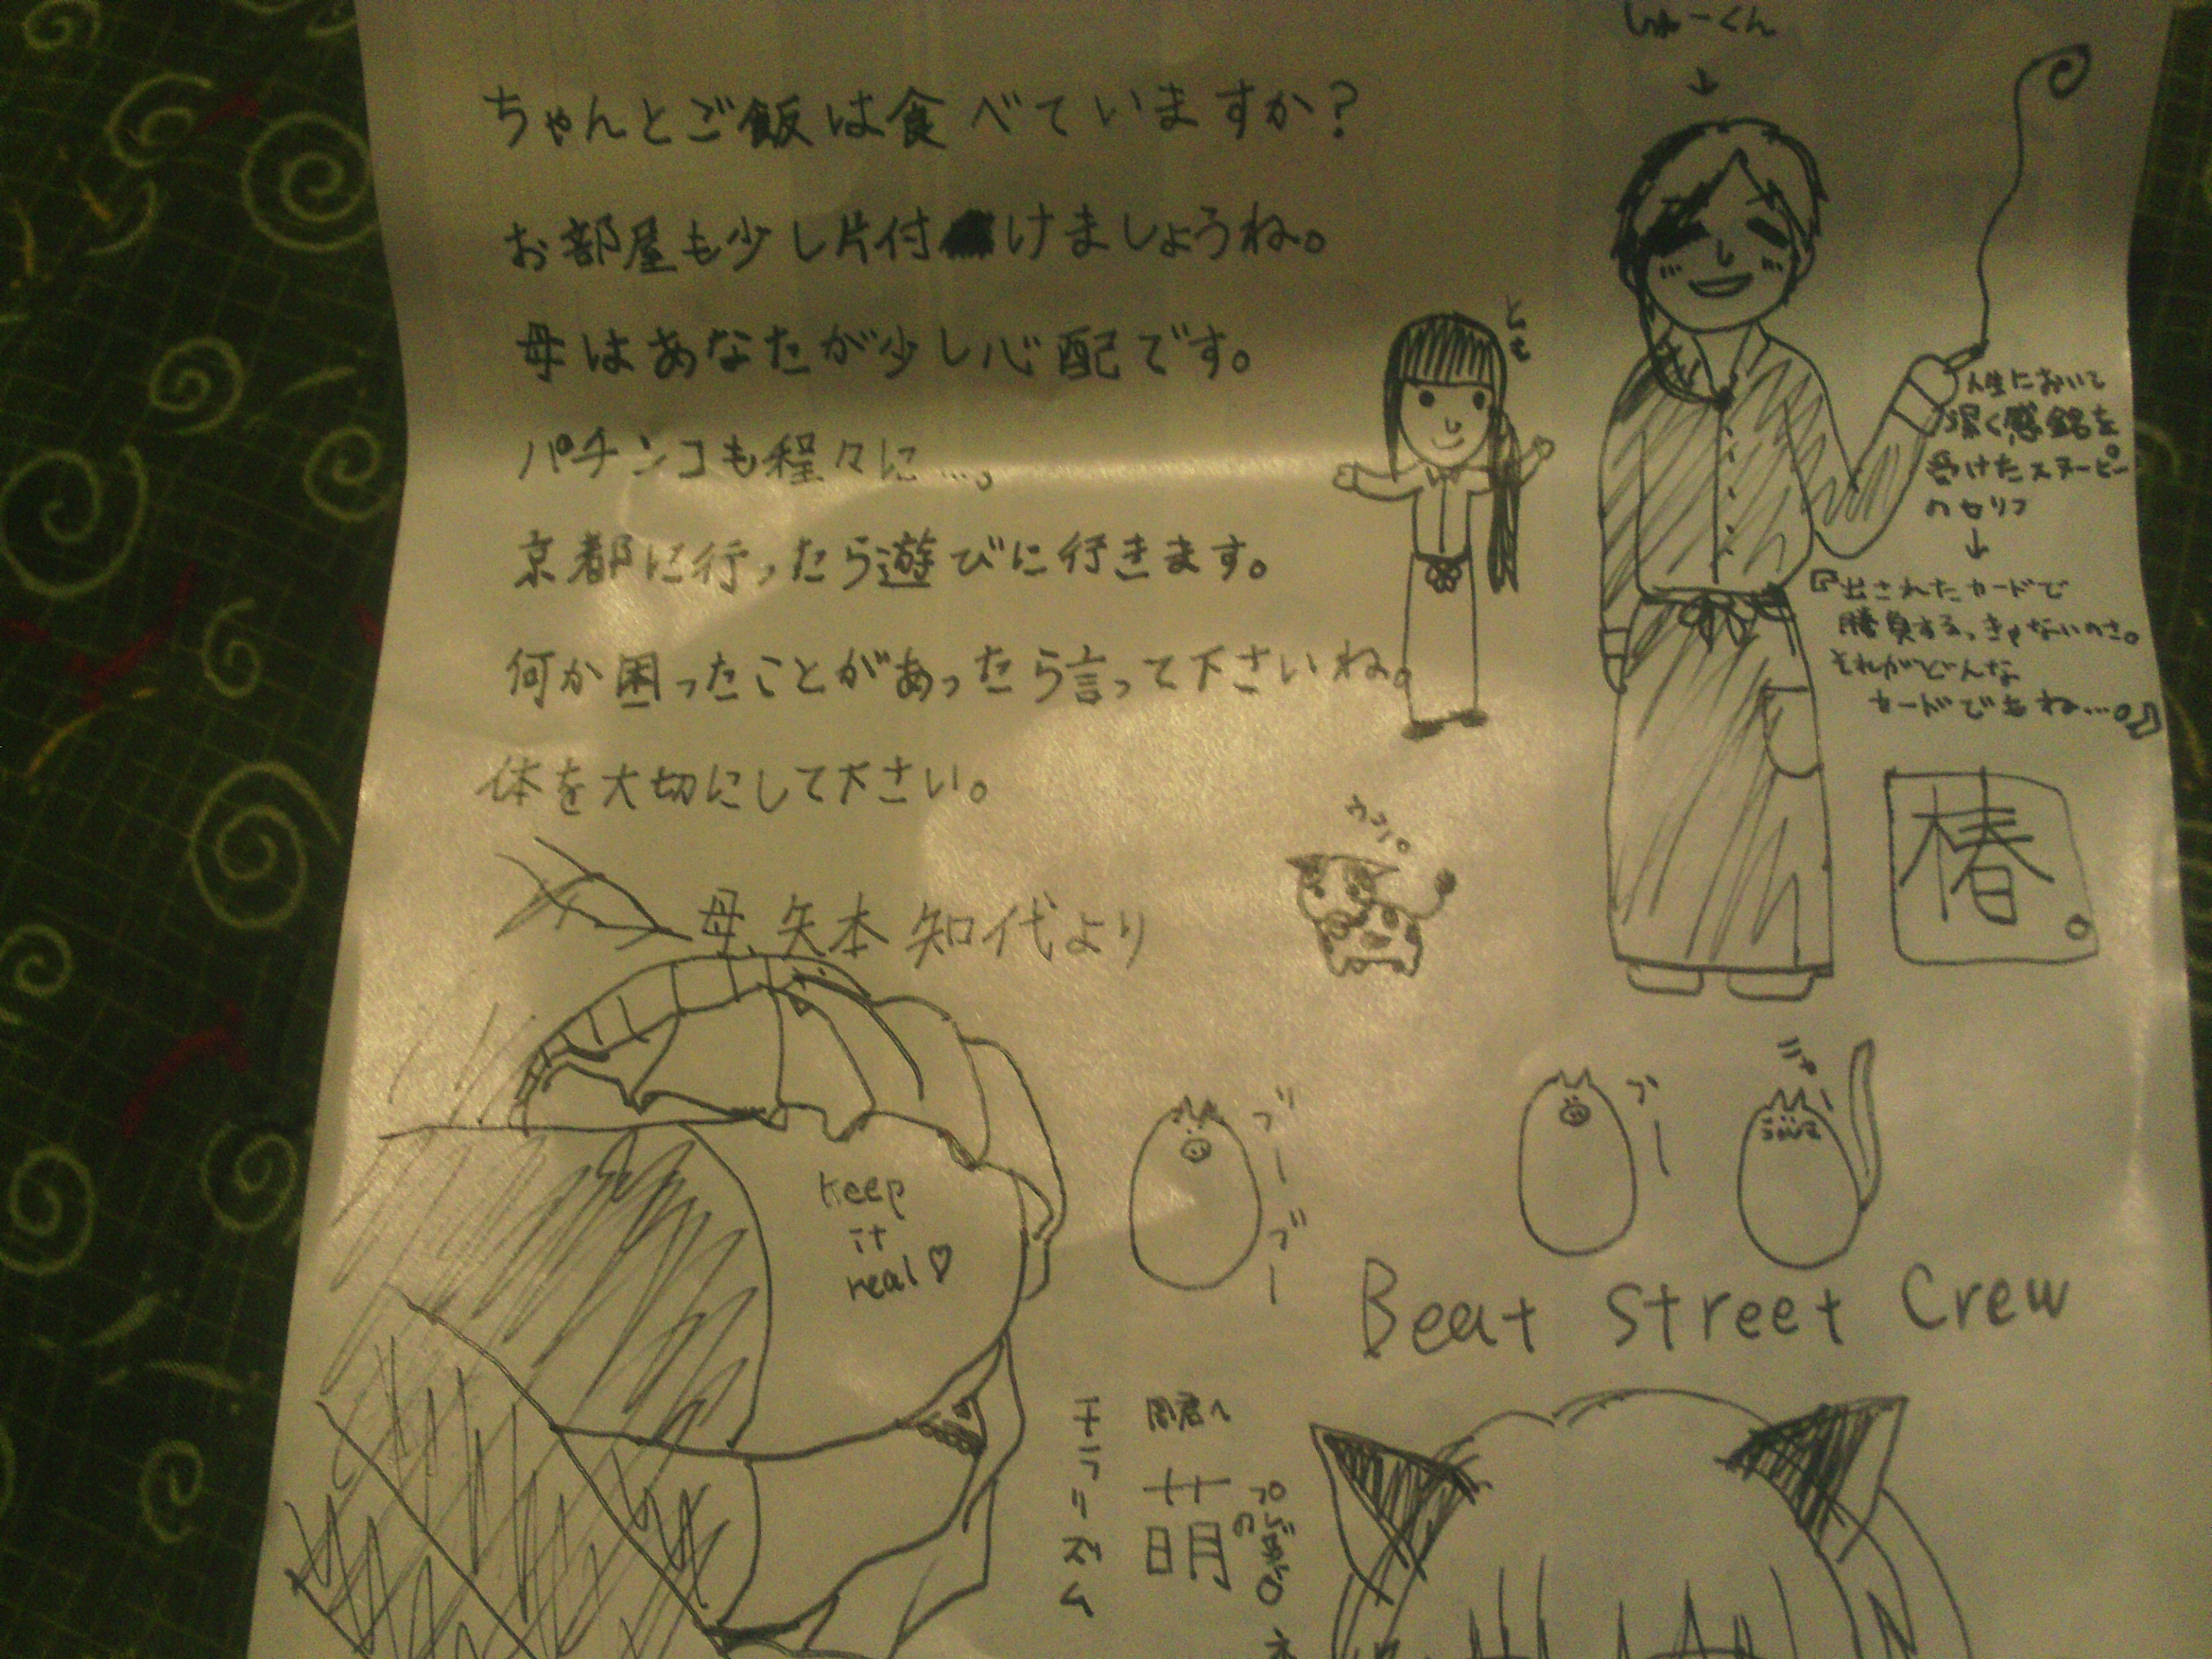 しゅーくん
↓
ちゃんとご飯は食べていますか?
お部屋も少し片付けましょうね。
母はあなたが少し心配です。
パチンコも程々に…。
京都に行ったら遊びに行きます。
何か困ったことがあったら言って下さいね。
体を大切にして下さい。
母、矢本 知代より
とも
人生において
深く感銘を
受けたスヌーピー
のセリフ
↓
『出されたカードで
勝負するっきゃないのさ。
それがどんな
カードでもね…。』
椿
keep
it
real♡
ブーブー
ブー
ニャー
Beat Street Crew
チラリズム
萌